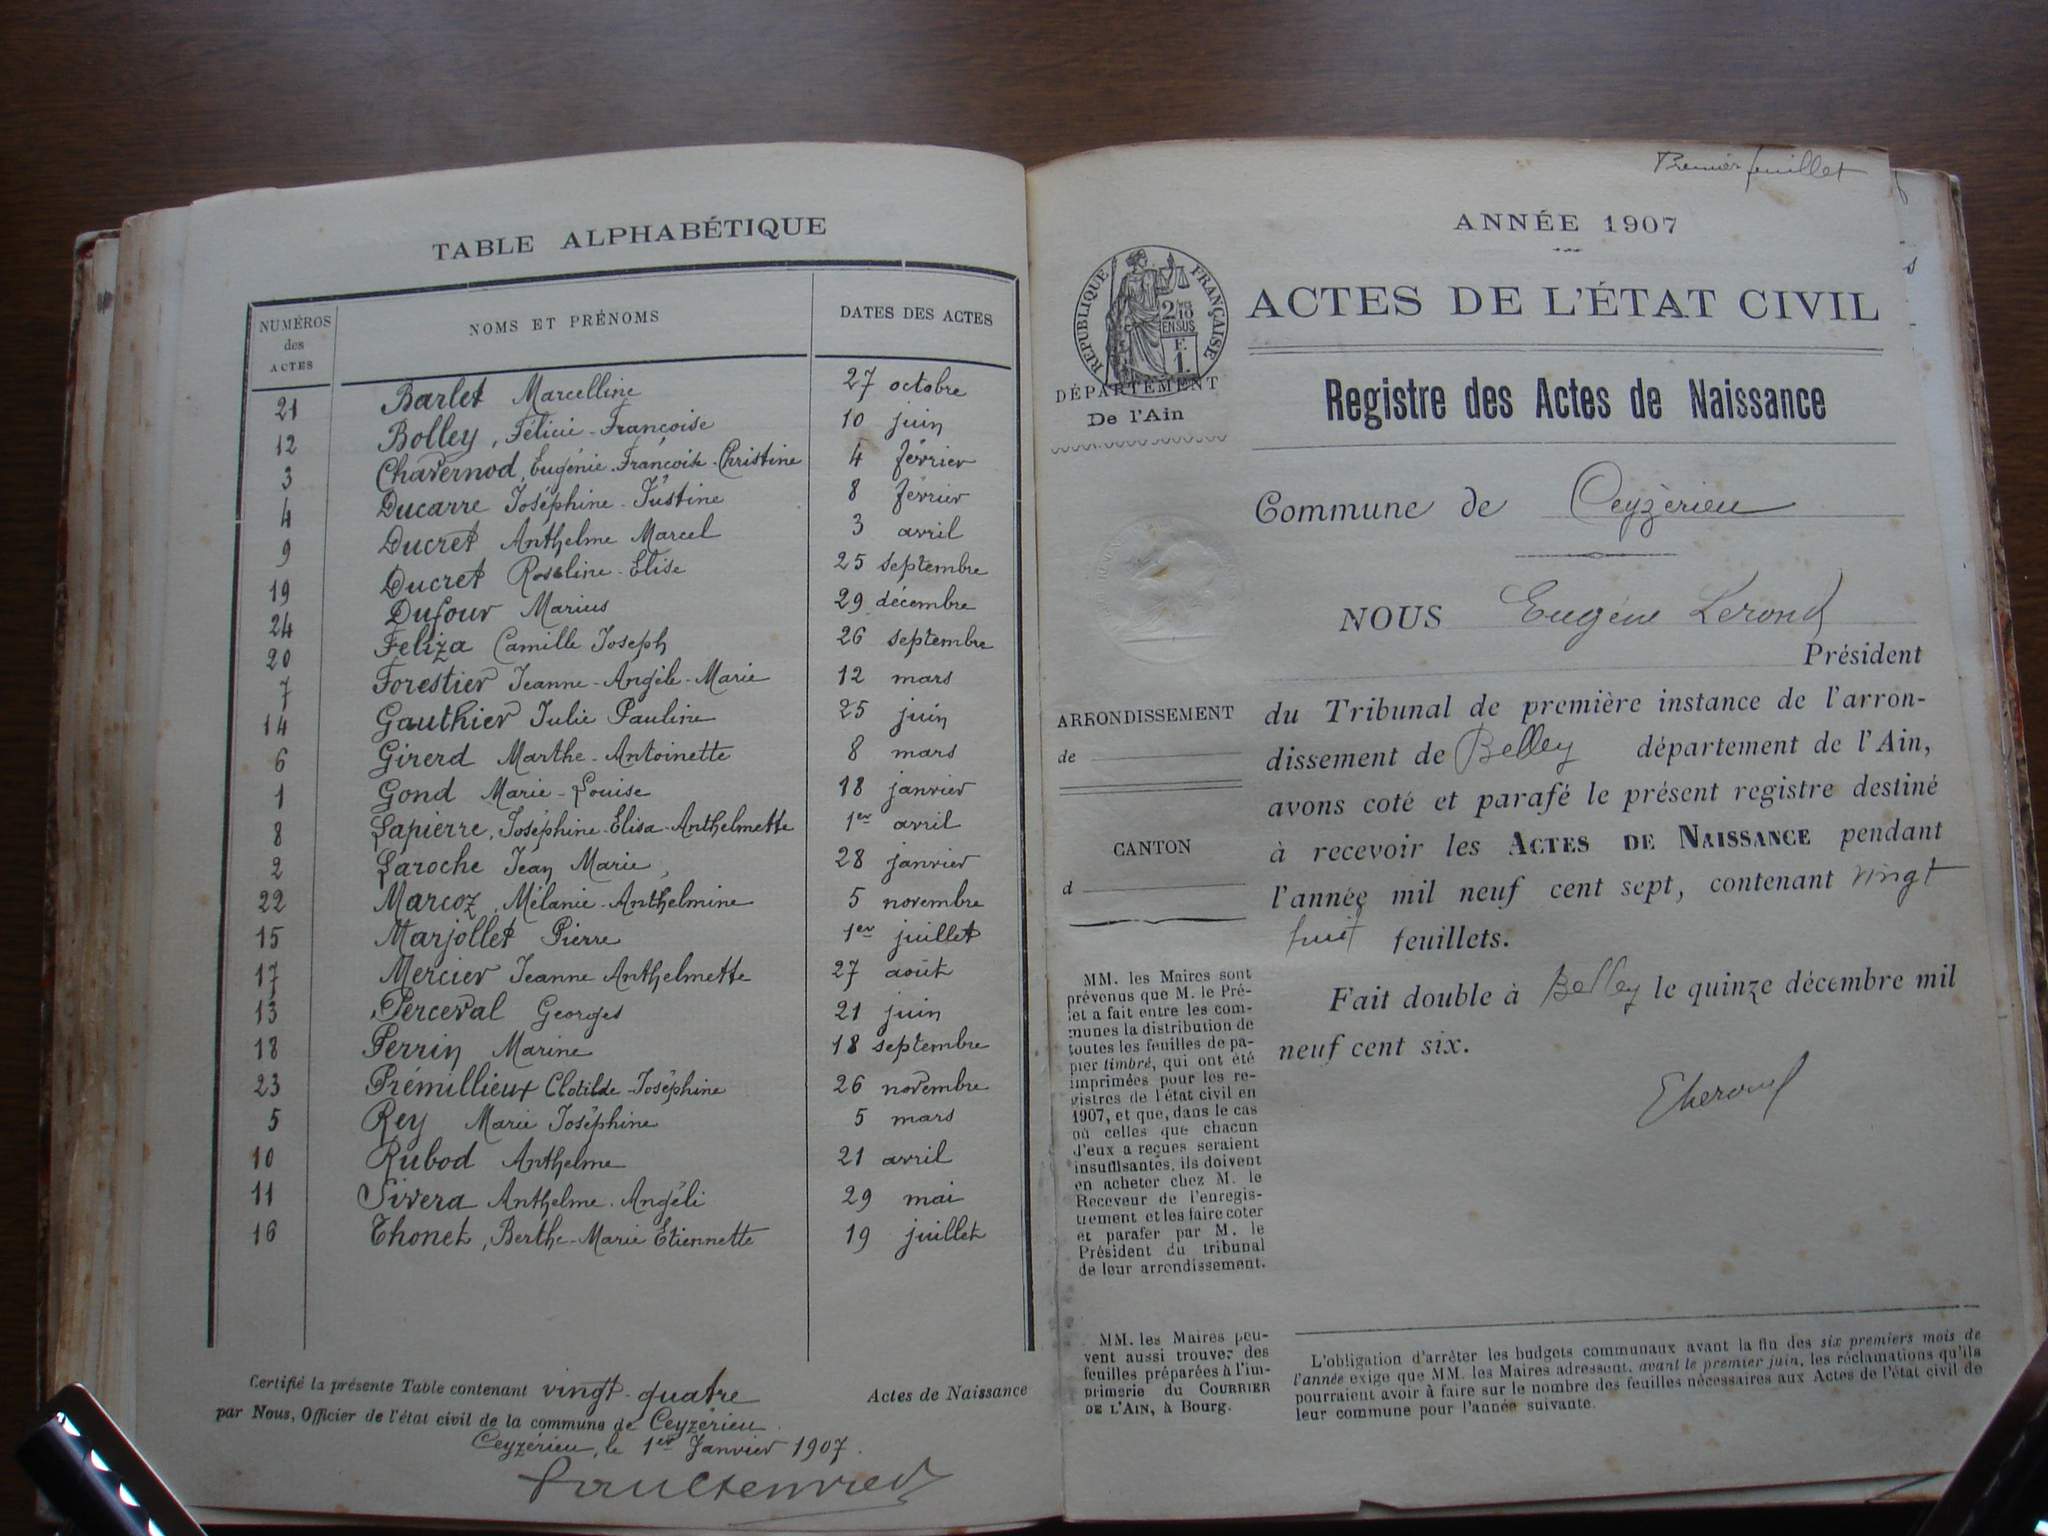 TABLE ALPHABÉTIQUE
NUMÉROS des ACTES NOMS ET PRÉNOMS DATES DES ACTES
21 Barlet Marcelline 27 octobre
12 Bolley, Félicie-Françoise 10 juin
3 Chavernod, Eugénie-Françoise-Christine 4 février
4 Ducarre Joséphine-Justine 8 février
9 Ducret Anthelme Marcel 3 avril
19 Ducret Roseline-Elise 25 septembre
24 Dufour Marius 29 décembre
20 Feliza Camille Joseph 26 septembre
7 Forestier Jeanne-Angèle-Marie 12 mars
14 Gauthier Julie Pauline 25 juin
6 Girerd Marthe-Antoinette 8 mars
1 Gond Marie-Louise 18 janvier
8 Lapierre, Joséphine-Elisa-Anthelmette 1er avril
2 Laroche Jean Marie 28 janvier
22 Marcoz, Mélanie-Anthelmine 5 novembre
15 Marjollet Pierre 1er juillet
17 Mercier Jeanne Anthelmette 27 août
13 Perceval Georges 21 juin
18 Perrin Marine 18 septembre
23 Prémillieux Clotilde-Joséphine 26 novembre
5 Rey Marie Joséphine 5 mars
10 Rubod Anthelme 21 avril
11 Sivera Anthelme-Angéli 29 mai
16 Thonet, Berthe-Marie Etiennette 19 juillet
Certifié la présente Table contenant vingt-quatre Actes de Naissance
par Nous, Officier de l'état civil de la commune de Ceyzérieu.
Ceyzérieu, le 1er Janvier 1907.
Premier feuillet
ANNÉE 1907
RÉPUBLIQUE FRANÇAISE
2/10 EN SUS
F.
1.
DÉPARTEMENT
De l'Ain
ACTES DE L'ÉTAT CIVIL
Registre des Actes de Naissance
Commune de Ceyzérieu
NOUS Eugène Lerond
Président
du Tribunal de première instance de l'arron-
dissement de Belley département de l'Ain,
avons coté et parafé le présent registre destiné
à recevoir les ACTES DE NAISSANCE pendant
l'année mil neuf cent sept, contenant vingt
huit feuillets.
Fait double à Belley le quinze décembre mil
neuf cent six.
ELerond
ARRONDISSEMENT
de
CANTON
d
MM. les Maires sont
prévenus que M. le Pré-
fet a fait entre les com-
munes la distribution de
toutes les feuilles de pa-
pier timbré, qui ont été
imprimées pour les re-
gistres de l'état civil en
1907, et que, dans le cas
où celles que chacun
d'eux a reçues seraient
insuffisantes, ils doivent
en acheter chez M. le
Receveur de l'enregis-
trement et les faire coter
et parafer par M. le
Président du tribunal
de leur arrondissement.
MM. les Maires peu-
vent aussi trouver des
feuilles préparées à l'im-
primerie du COURRIER
DE L'AIN, à Bourg.
L'obligation d'arrêter les budgets communaux avant la fin des six premiers mois de
l'année exige que MM. les Maires adressent, avant le premier juin, les réclamations qu'ils
pourraient avoir à faire sur le nombre des feuilles nécessaires aux Actes de l'état civil de
leur commune pour l'année suivante.